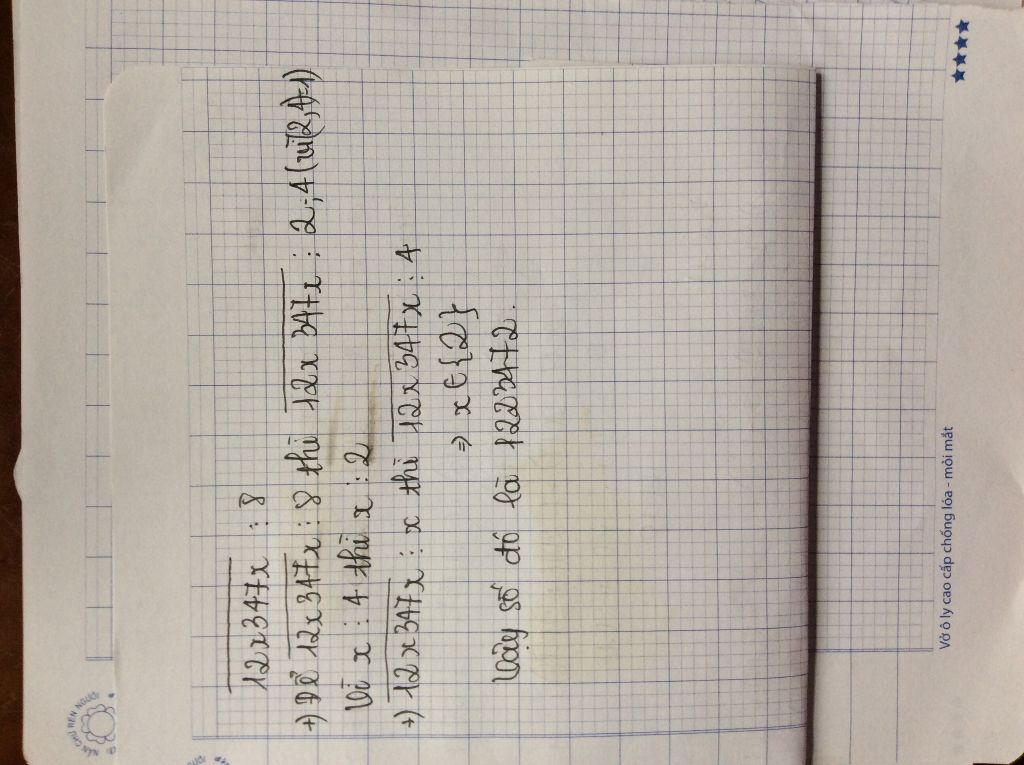 12x347x ⋮ 8
+) Để 12x347x ⋮ 8 thì 12x347x ⋮ 2;4 (vì (2,4)=1)
Vì x ⋮ 4 thì x ⋮ 2
+) 12x347x ⋮ x thì 12x347x ⋮ 4
⇒ x ∈ {2}
Vậy số đó là 1223472.
Vở ô ly cao cấp chống lóa - mỏi mắt
NẮN CHỮ RÈN NGƯỜI